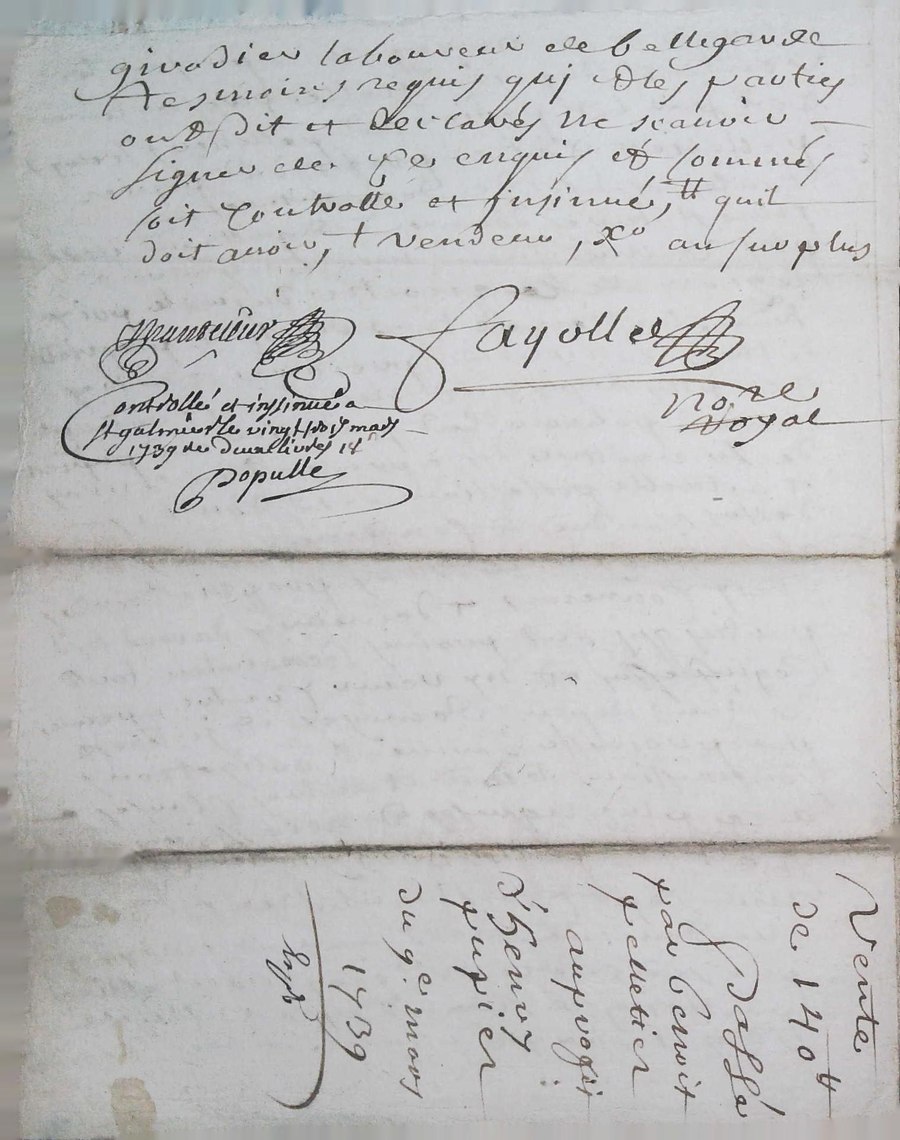 girodier laboureur de bellegarde
tesmoins requis quj & les parties
ont dit et declarés ne scauoir
signer de ce enquis & sommés
soit controllé et jnsinué, quil
doit auoir, vendeur, au surplus
Fayolle
no.re
Royal
Controllé et inssinué a
st galmier le vingt trois mars
1739 deux livres
Populle
Vente
de 140tt
passé
par benoit
pelletier
au profit
d'henry
pupier
du 9e mars
1739